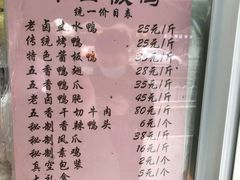 统一价目表
老卤盐水鸭 25元/斤
传统烤鸭 25元/斤
特色酱板鸭 35元/斤
五香鸭翅 28元/斤
五香鸭爪 38元/斤
老卤鸭肫 45元/斤
五香干切牛肉 80元/斤
秘制鸭头 6元/个
秘制凤爪 38元/斤
秘制素鸡 16元/斤
真空包装 2元/个
5元/个